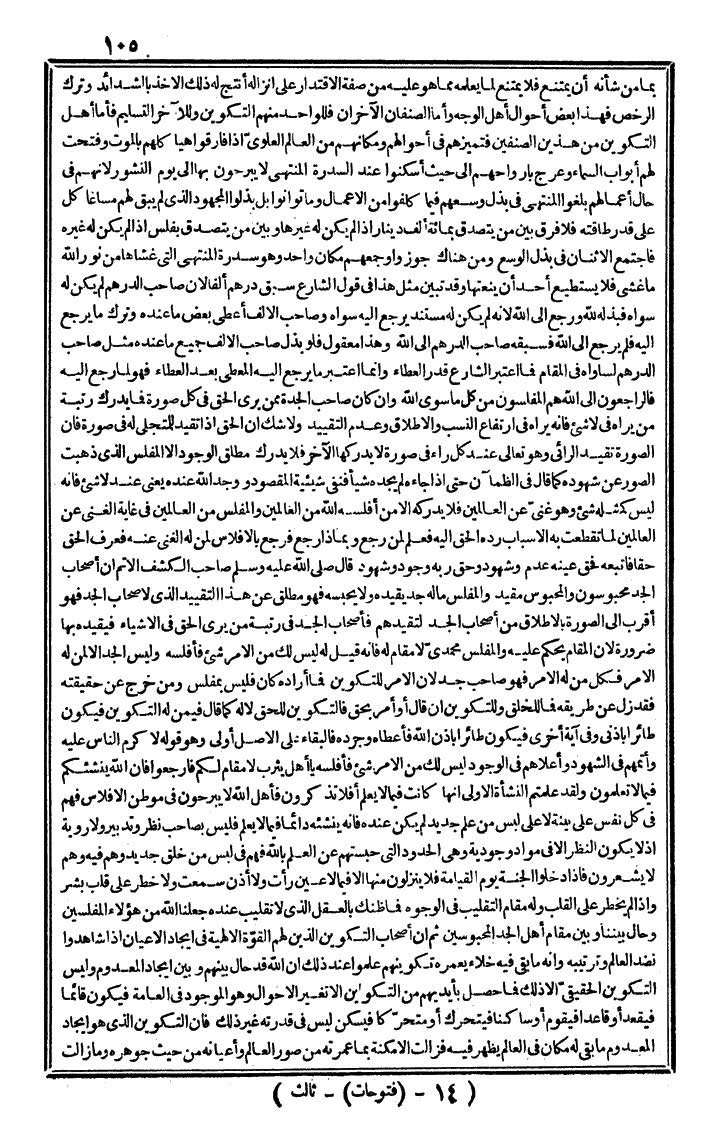 ١٠٥
بمامن شأنه أن يمتنع فلا يمتنع لما يعلمه مما هو عليه من صفة الاقتدار على انزاله أنتج له ذلك الاخذ بالشدائد وترك
الرخص فهذا بعض أحوال أهل الوجه وأما الصنفان الآخران فللواحد منهم التكوين وللآخر التسليم فأما أهل
التكوين من هذين الصنفين فتميزهم فى أحوالهم ومكانتهم من العالم العلوىّ اذا فارقوا هيا كلهم بالموت وفتحت
لهم أبواب السماء وعرج بارواحهم الى حيث أسكنوا عند السدرة المنتهى لا يبرحون بها الى يوم النشور لانهم فى
حال أعمالهم بلغوا المنتهى فى بذل وسعهم فيما كلفوا من الاعمال وماتوانوا بل بذلوا المجهود الذى لم يبق لهم مساغا كل
على قدر طاقته فلا فرق بين من يتصدق بمائة ألف دينار اذا لم يكن له غيرها وبين من يتصدق بفلس اذا لم يكن له غيره
فاجتمع الاثنان فى بذل الوسع ومن هناك جوزوا وجمعهم مكان واحد وهو سدرة المنتهى التى غشاها من نور الله
ماغشى فلا يستطيع أحد أن ينعتها وقد تبين مثل هذا فى قول الشارع سبق درهم ألفا لان صاحب الدرهم لم يكن له
سواه فبذله لله ورجع الى الله لانه لم يكن له مستند يرجع اليه سواه وصاحب الالف أعطى بعض ماعنده وترك ما يرجع
اليه فلم يرجع الى الله فسبقه صاحب الدرهم الى الله وهذا معقول فلو بذل صاحب الالف جميع ماعنده مثل صاحب
الدرهم لساواه فى المقام فما اعتبر الشارع قدر العطاء وانما اعتبر ما يرجع اليه المعطى بعد العطاء فهو لما رجع اليه
فالراجعون الى الله هم المفلسون من كل ماسوى الله وان كان صاحب الجدة ممن يرى الحق فى كل صورة فما يدرك رتبة
من يراه فى لا شئ فانه يراه فى ارتفاع النسب والاطلاق وعدم التقييد ولا شك ان الحق اذا تقيد للمتجلى له فى صورة فان
الصورة تقيد الرائى وهو تعالى عند كل راء فى صورة لا يدركها الآخر فلا يدرك مطلق الوجود الا المفلس الذى ذهبت
الصور عن شهوده كما قال فى الظمآن حتى اذا جاءه لم يجده شيأ فنفى شيئية المقصود ووجد الله عنده يعنى عند لا شئ فانه
ليس كمثله شئ وهو غنىّ عن العالمين فلا يدركه الا من أفلسه الله من العالمين والمفلس من العالمين فى غاية الغنى عن
العالمين لما تقطعت به الاسباب رده الحق اليه فعلم لمن رجع وبماذا رجع فرجع بالافلاس لمن له الغنى عنه فعرف الحق
حقا فاتبعه فحق عينه عدم وشهود وحق ربه وجود وشهود قال صلى الله عليه وسلم صاحب الكشف الاتم ان أصحاب
الجد محبوسون والمحبوس مقيد والمفلس ماله جد يقيده ولا يحبسه فهو مطلق عن هذا التقييد الذى لاصحاب الجد فهو
أقرب الى الصورة بالاطلاق من أصحاب الجد لتقيدهم فأصحاب الجد فى رتبة من يرى الحق فى الاشياء فيقيده بها
ضرورة لان المقام يحكم عليه والمفلس محمدىّ لا مقام له فانه قيل له ليس لك من الامر شئ فأفلسه وليس الجد الا لمن له
الامر فكل من له الامر فهو صاحب جد لان الامر للتكوين فما أراده كان فليس بمفلس ومن خرج عن حقيقته
فقد زل عن طريقه فما للخلق وللتكوين ان قال أو أمر بحق فالتكوين للحق لا له كما قال فيمن له التكوين فيكون
طائرا باذنى وفى آية أخرى فيكون طائرا باذن الله فأعطاه وجرده فالبقاء على الاصل أولى وهو قوله لا كرم الناس عليه
وأتمهم فى الشهود وأعلاهم فى الوجود ليس لك من الامر شئ فأفلسه يا أهل يثرب لا مقام لكم فارجعوا فان الله ينشئكم
فيما لا تعلمون ولقد علمتم النشأة الاولى انها كانت فيما لا يعلم أفلا تذكرون فأهل الله لا يبرحون فى موطن الافلاس فهم
فى كل نفس على بينة لا على لبس من علم جديد لم يكن عنده فانه ينشئه دائما فيما لا يعلم فليس بصاحب نظر وتدبير ولا روية
اذ لا يكون النظر الا فى مواد وجودية وهى الحدود التى حبستهم عن العلم بالله فهم فى لبس من خلق جديد وهم فيه وهم
لا يشعرون فاذا دخلوا الجنة يوم القيامة فلا ينزلون منها الا فيما لا عين رأت ولا أذن سمعت ولا خطر على قلب بشر
واذا لم يخطر على القلب وله مقام التقليب فى الوجوه فما ظنك بالعقل الذى لا تقليب عنده جعلنا الله من هؤلاء المفلسين
وحال بيننا وبين مقام أهل الجد المحبوسين ثم ان أصحاب التكوين الذين لهم القوّة الالهية فى ايجاد الاعيان اذا شاهدوا
نضد العالم وترتيبه وانه مابقى فيه خلاء يعمره تكوينهم علموا عند ذلك ان الله قد حال بينهم وبين ايجاد المعدوم وليس
التكوين الحقيقىّ الا ذلك فما حصل بأيديهم من التكوين الا تغيير الاحوال وهو الموجود فى العامة فيكون قائما
فيقعد أو قاعدا فيقوم أو ساكنا فيتحرك أو متحرّ كا فيسكن ليس فى قدرته غير ذلك فان التكوين الذى هو ايجاد
المعدوم مابقى له مكان فى العالم يظهر فيه فزالت الامكنة بما عمرته من صور العالم وأعيانه من حيث جوهره ومازالت
( ١٤ - (فتوحات) - ثالث )